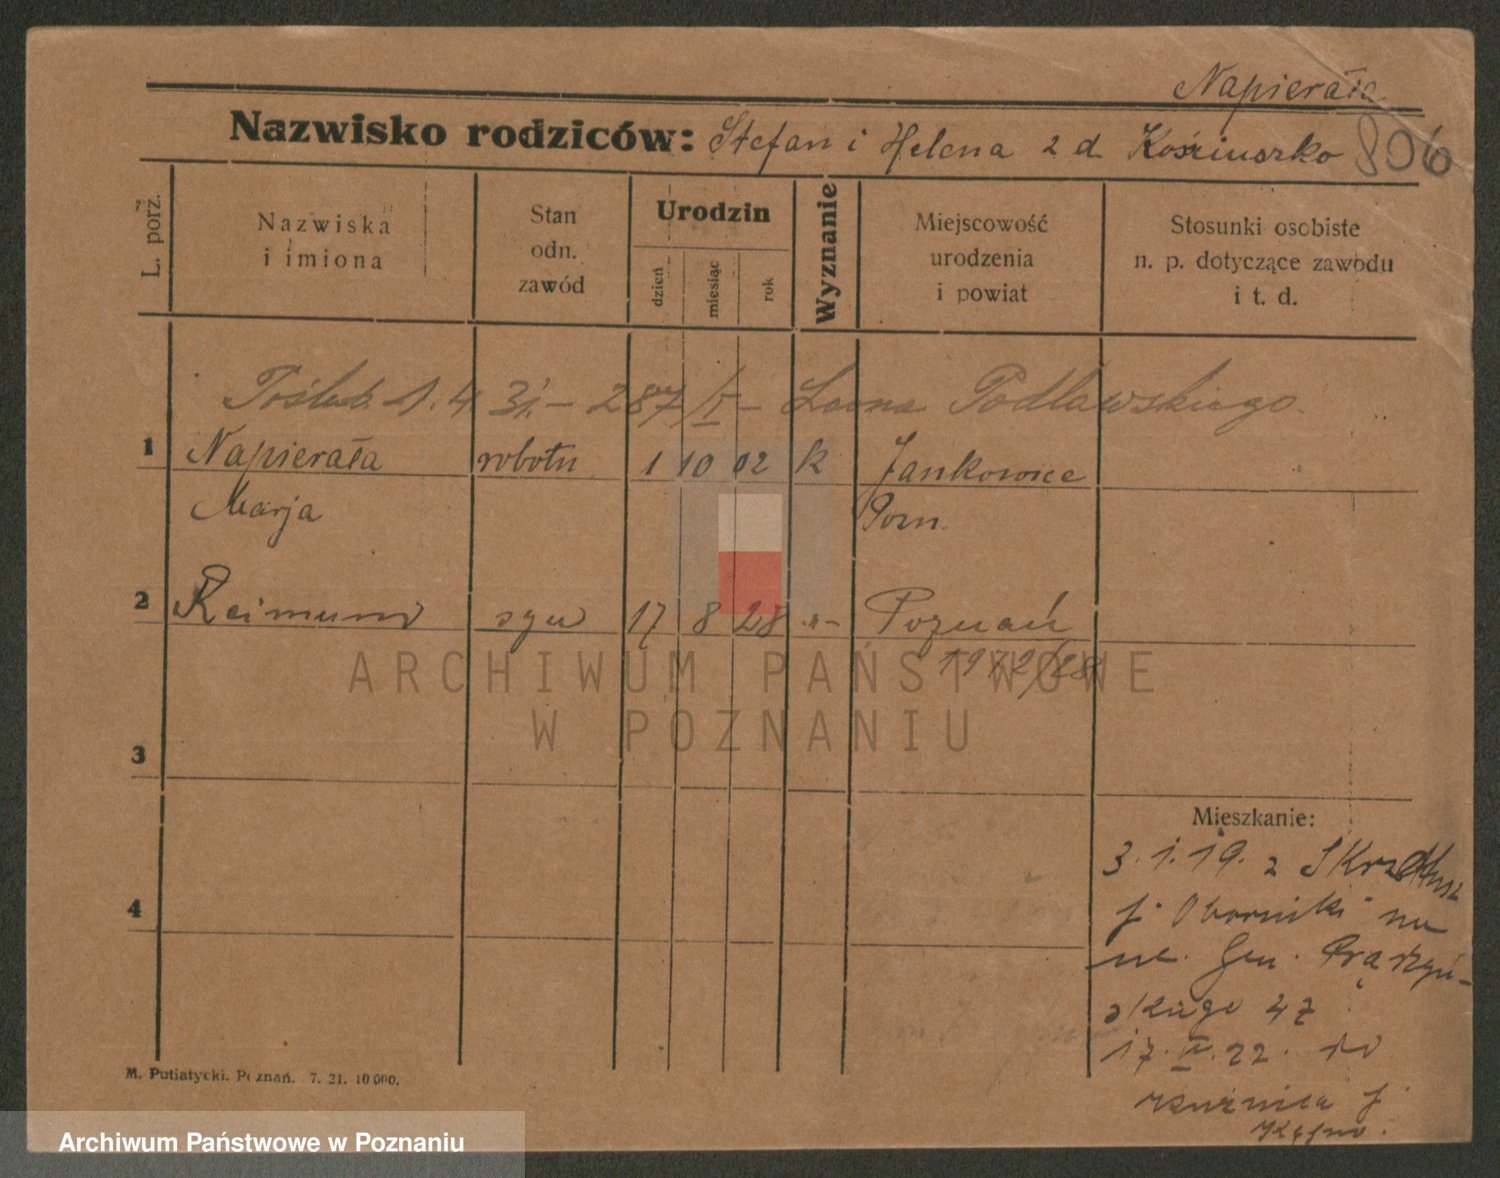 Napierała
Nazwisko rodziców: Stefan i Helena 2 d. Kościuszko 806
L. porz.
Nazwiska
i imiona
Stan
odn.
zawód
Urodzin
dzień
miesiąc
rok
Wyznanie
Miejscowość
urodzenia
i powiat
Stosunki osobiste
n. p. dotyczące zawodu
i t. d.
1.4 31. – 287/I – Leona Podlawskiego.
1 Napierała robotn 1 10 02 k Jankowice
Marja Pozn.
2 Reimund syn 17 8 28 -"- Poznań
1972/28
ARCHIWUM PAŃSTWOWE
W POZNANIU
3
Mieszkanie:
3.1.19. z Skrzetusz
4
p. Oborniki na
ul. Gen. Prądzyń-
skiego 47
17. 22. do
p.
Kępno.
M. Putiatycki. Poznań. 7. 21. 10 000.
Archiwum Państwowe w Poznaniu